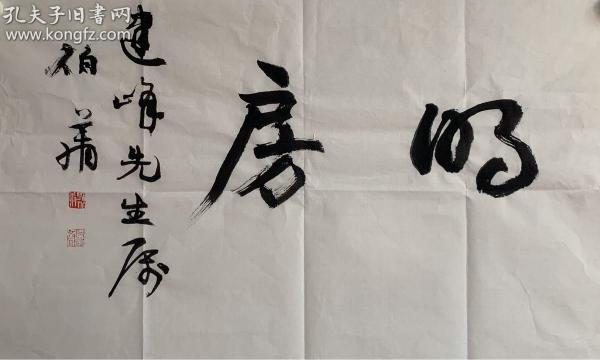 孔夫子旧书网
www.kongfz.com
明房
建峰先生属